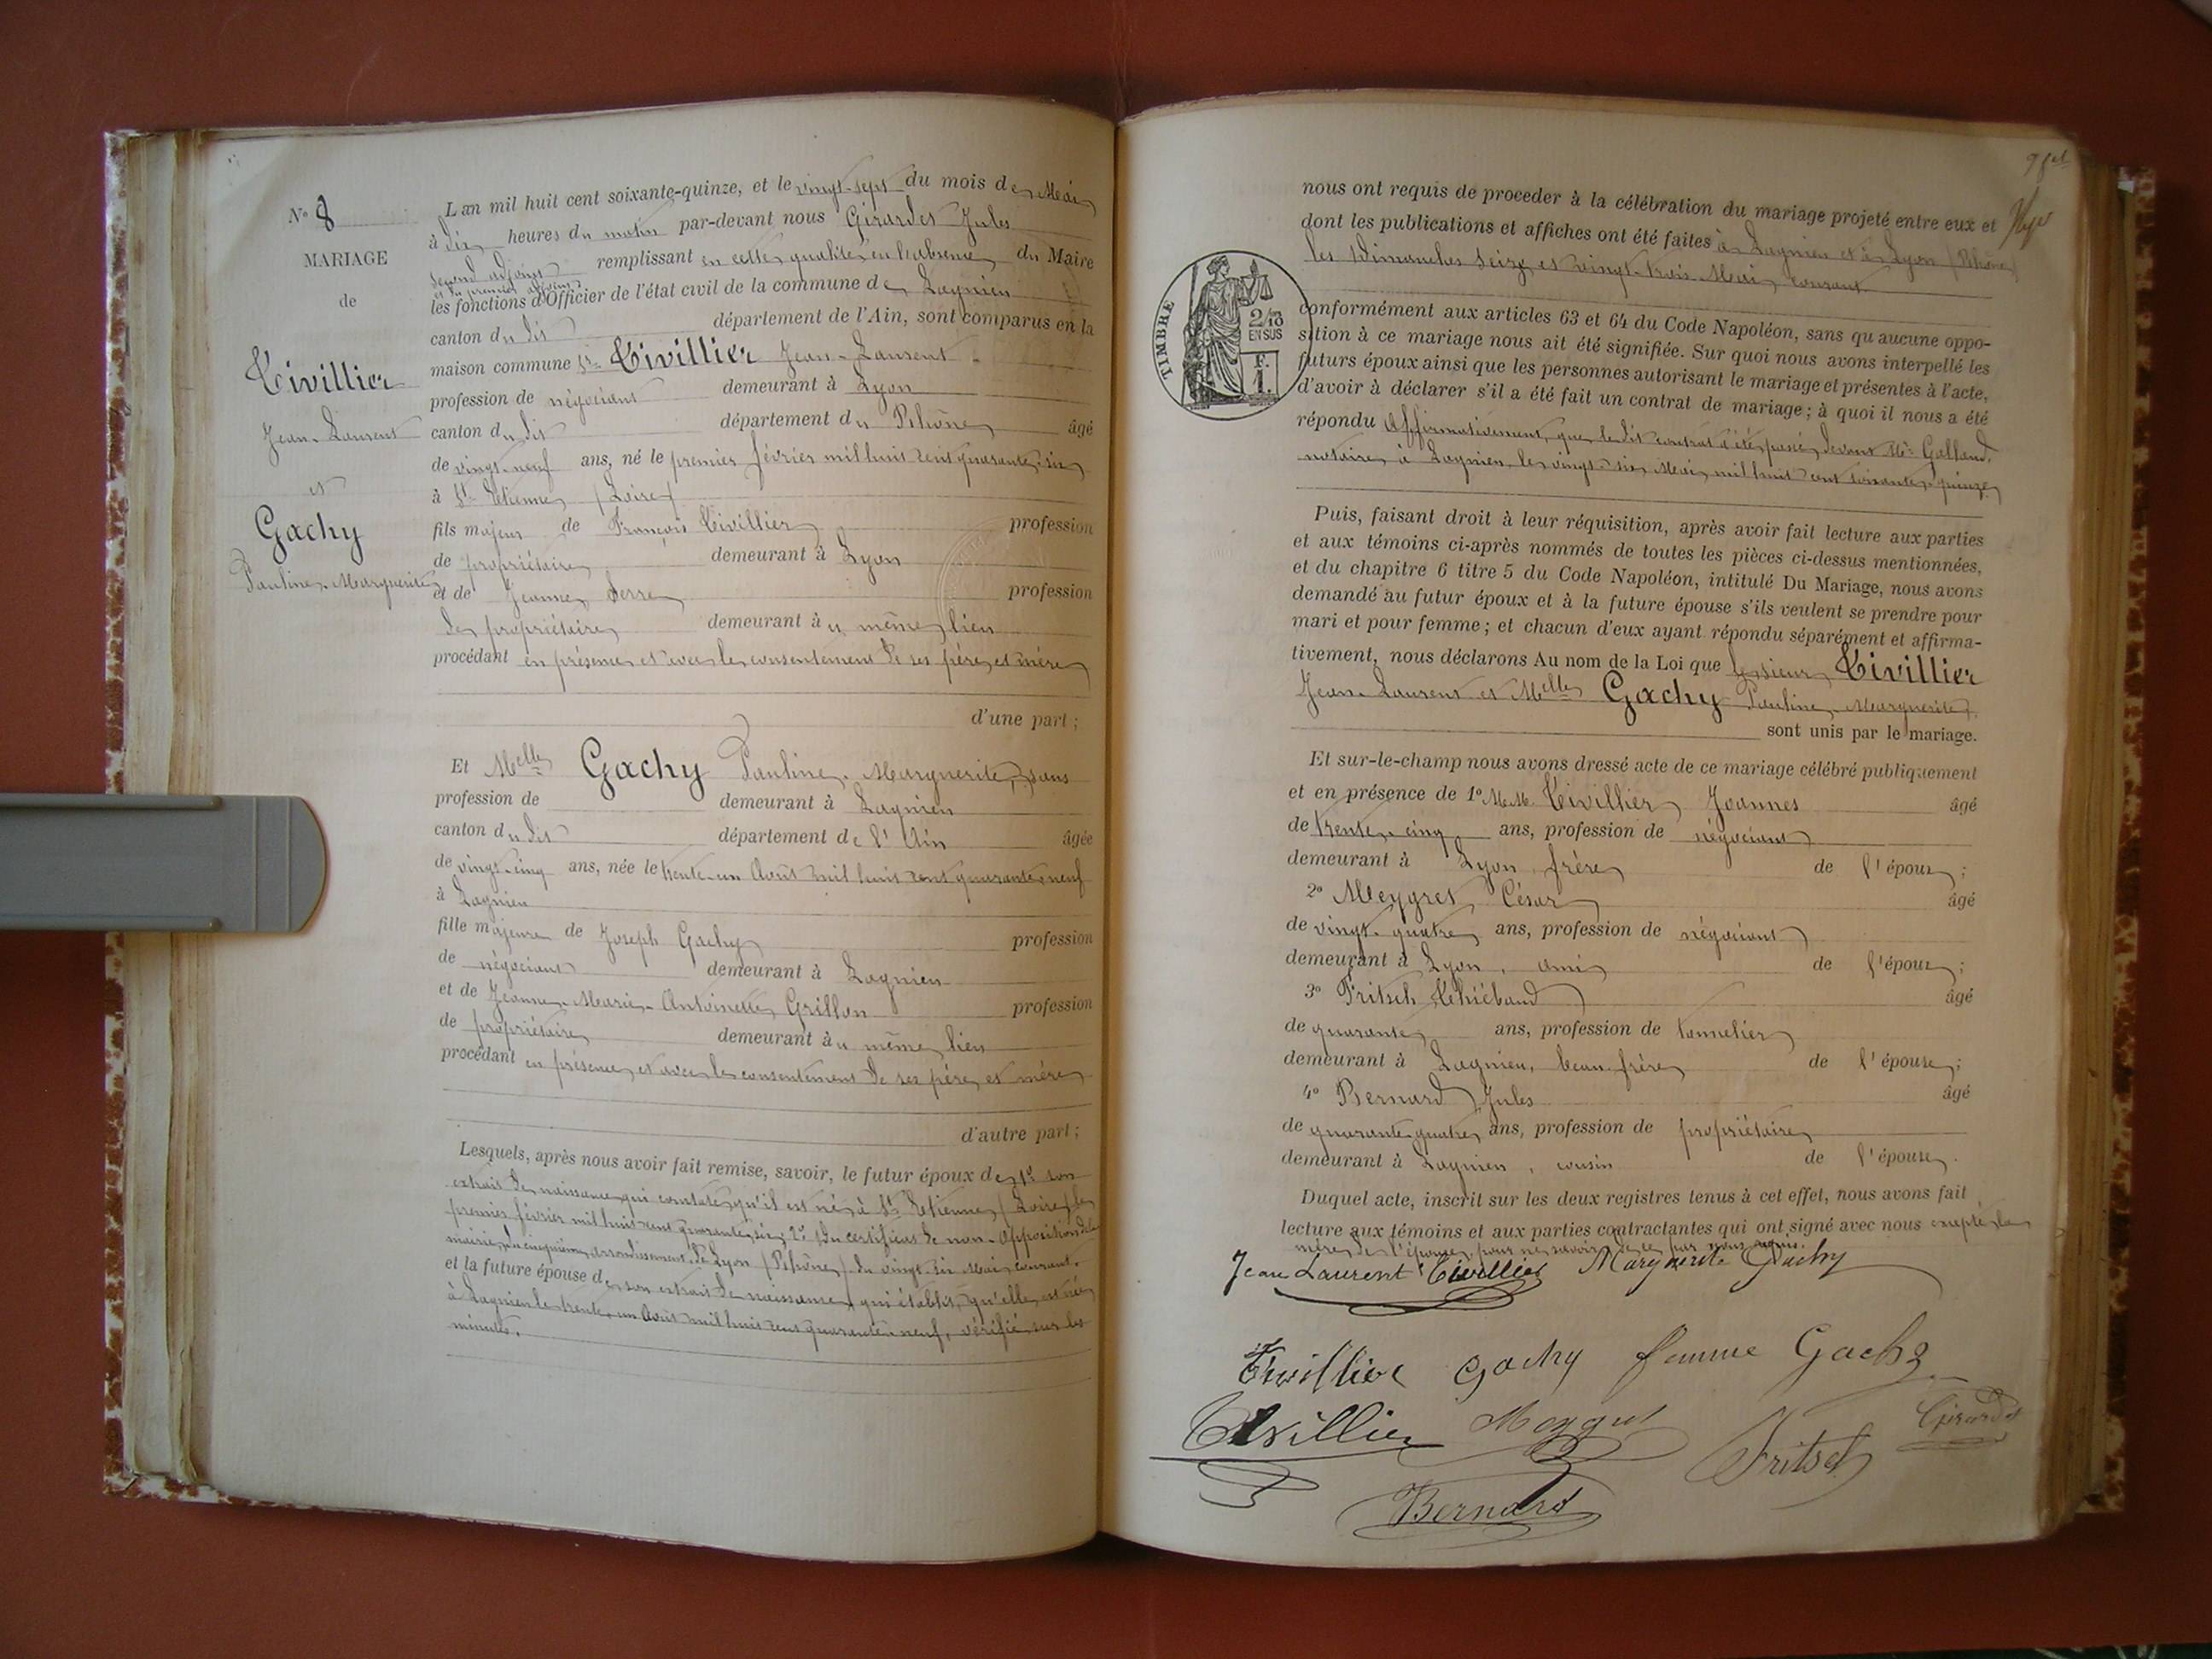 N° 8
MARIAGE
de
Tivillier
Jean-Laurent
et
Gachy
Pauline-Marguerite
L'an mil huit cent soixante-quinze, et le vingt-sept du mois de Mai
à dix heures du matin par-devant nous Girardet Jules
second adjoint remplissant en cette qualité en l'absence du Maire
et du premier adjoint
les fonctions d'Officier de l'état civil de la commune de Lagnieu
canton du dit département de l'Ain, sont comparus en la
maison commune Sr Tivillier Jean-Laurent
profession de négociant demeurant à Lyon
canton du dit département du Rhône âgé
de vingt-neuf ans, né le premier février mil huit cent quarante-six
à St Etienne (Loire)
fils majeur de François Tivillier profession
de propriétaire demeurant à Lyon
et de Jeanne Serre profession
de propriétaire demeurant au même lieu
procédant en présence et avec le consentement de ses père et mère
d'une part ;
Et Melle Gachy Pauline-Marguerite, sans
profession de demeurant à Lagnieu
canton du dit département de l'Ain âgée
de vingt-cinq ans, née le trente-un Août mil huit cent quarante-neuf
à Lagnieu
fille majeure de Joseph Gachy profession
de négociant demeurant à Lagnieu
et de Jeanne-Marie-Antoinette Grillon profession
de propriétaire demeurant au même lieu
procédant en présence et avec le consentement de ses père et mère
d'autre part ;
Lesquels, après nous avoir fait remise, savoir, le futur époux de 1° son
extrait de naissance qui constate qu'il est né à St Etienne (Loire) le
premier février mil huit cent quarante-six, 2° du certificat de non-opposition de la
mairie du cinquième arrondissement de Lyon (Rhône) du vingt-six Mai courant.
et la future épouse de son extrait de naissance qui établit, qu'elle est née
à Lagnieu le trente-un Août mil huit cent quarante-neuf, vérifié sur les
minutes.
nous ont requis de proceder à la célébration du mariage projeté entre eux et
dont les publications et affiches ont été faites à Lagnieu et à Lyon (Rhône)
les Dimanches seize et vingt-trois Mai courant
TIMBRE
2/10
EN SUS
F.
1.
conformément aux articles 63 et 64 du Code Napoléon, sans qu'aucune oppo-
sition à ce mariage nous ait été signifiée. Sur quoi nous avons interpellé les
futurs époux ainsi que les personnes autorisant le mariage et présentes à l'acte,
d'avoir à déclarer s'il a été fait un contrat de mariage ; à quoi il nous a été
répondu affirmativement, que le dit contrat a été passé devant Me Galland.
notaire à Lagnieu le vingt-six Mai mil huit cent soixante-quinze
Puis, faisant droit à leur réquisition, après avoir fait lecture aux parties
et aux témoins ci-après nommés de toutes les pièces ci-dessus mentionnées,
et du chapitre 6 titre 5 du Code Napoléon, intitulé Du Mariage, nous avons
demandé au futur époux et à la future épouse s'ils veulent se prendre pour
mari et pour femme ; et chacun d'eux ayant répondu séparément et affirma-
tivement, nous déclarons Au nom de la Loi que le sieur Tivillier
Jean-Laurent et Melle Gachy Pauline-Marguerite
sont unis par le mariage.
Et sur-le-champ nous avons dressé acte de ce mariage célébré publiquement
et en présence de 1° M.M. Tivillier Joannes âgé
de trente-cinq ans, profession de négociant
demeurant à Lyon, frère de l'époux ;
2° Meygret César âgé
de vingt-quatre ans, profession de négociant
demeurant à Lyon, ami de l'époux ;
3° Fritsch Thiébaud âgé
de quarante ans, profession de tonnelier
demeurant à Lagnieu, beau-frère de l'épouse ;
4° Bernard Jules âgé
de quarante-quatre ans, profession de propriétaire
demeurant à Lagnieu, cousin de l'épouse.
Duquel acte, inscrit sur les deux registres tenus à cet effet, nous avons fait
lecture aux témoins et aux parties contractantes qui ont signé avec nous excepté la
mère de l'époux, pour ne savoir de ce par nous requis.
Jean Laurent Tivillier Marguerite Gachy
Tivillier Gachy femme Gachy
Tivillier Meygret Fritsch Girardet
Bernard